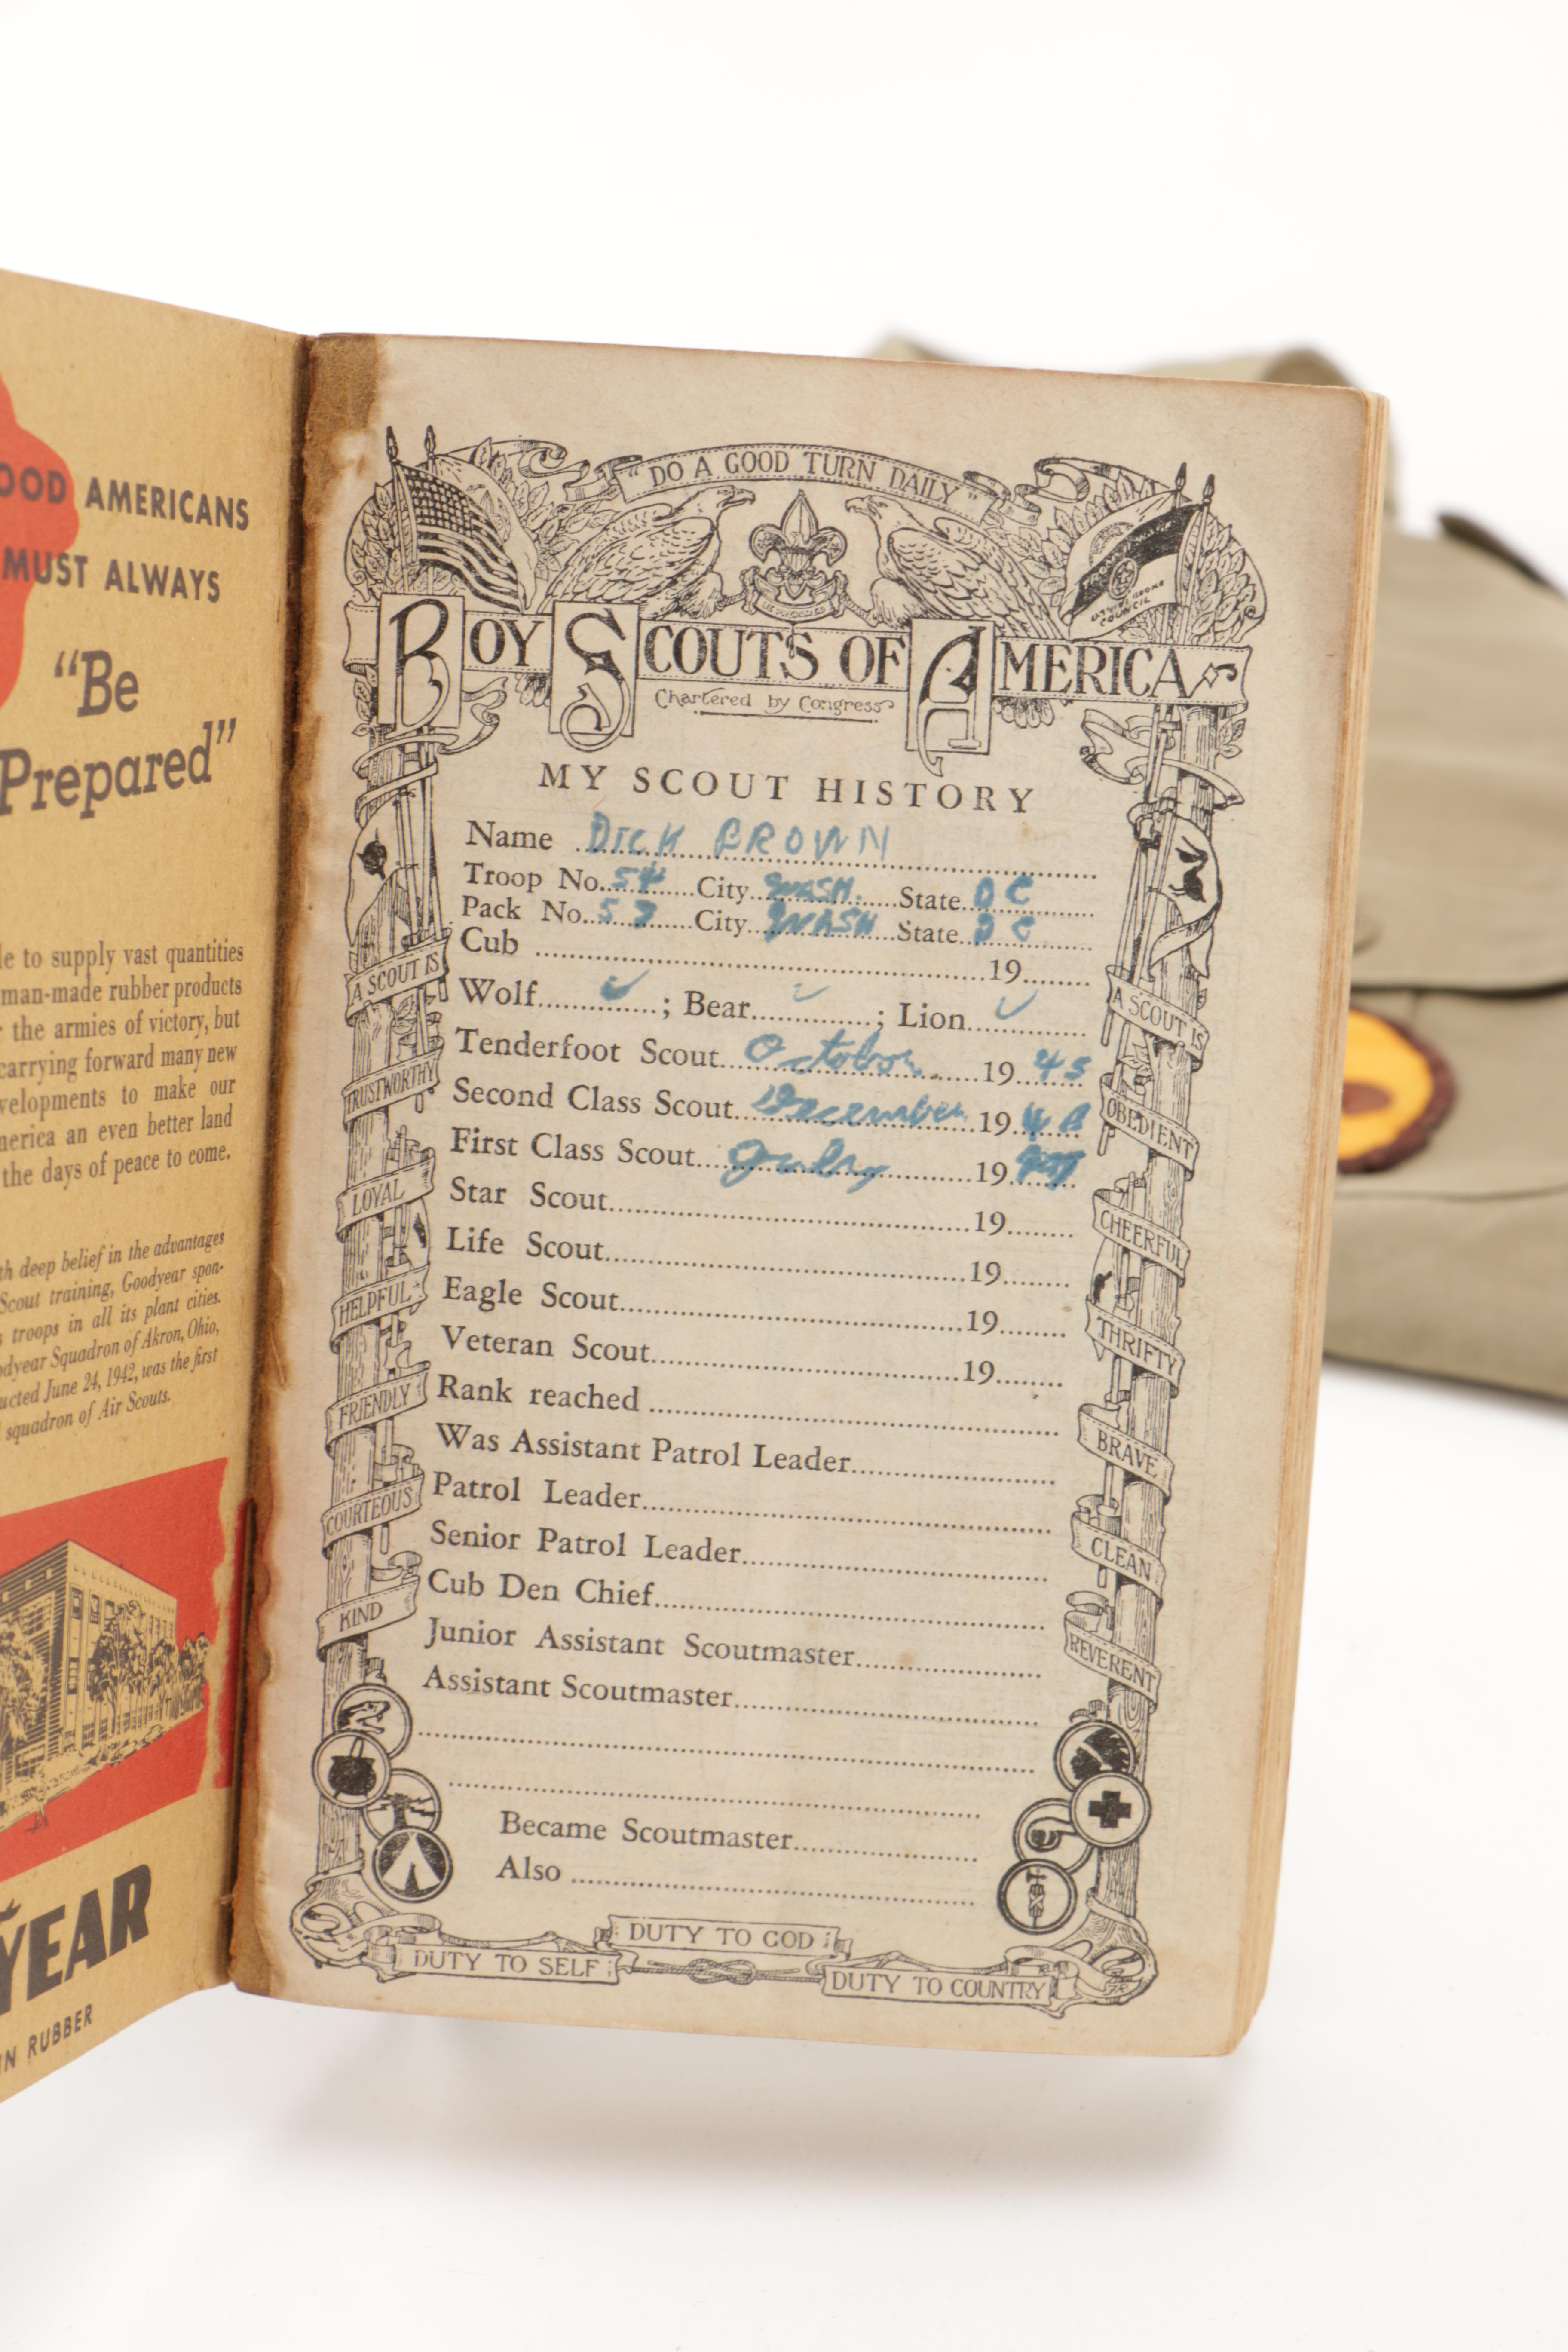 OOD AMERICANS
MUST ALWAYS
"Be
Prepared"
le to supply vast quantities
man-made rubber products
r the armies of victory, but
carrying forward many new
velopments to make our
merica an even better land
the days of peace to come.
th deep belief in the advantages
Scout training, Goodyear spon-
s troops in all its plant cities.
odyear Squadron of Akron, Ohio,
ucted June 24, 1942, was the first
squadron of Air Scouts.
YEAR
IN RUBBER
"DO A GOOD TURN DAILY"
BOY SCOUTS OF AMERICA
Chartered by Congress
MY SCOUT HISTORY
Name DICK BROWN
Troop No. 54 City WASH. State D C
Pack No. 53 City WASH State D C
Cub 19
Wolf ✓; Bear ✓; Lion ✓
Tenderfoot Scout October 19 45
Second Class Scout December 19
First Class Scout July 19
Star Scout 19
Life Scout 19
Eagle Scout 19
Veteran Scout 19
Rank reached
Was Assistant Patrol Leader
Patrol Leader
Senior Patrol Leader
Cub Den Chief
Junior Assistant Scoutmaster
Assistant Scoutmaster
Became Scoutmaster
Also
A SCOUT IS
TRUSTWORTHY
LOYAL
HELPFUL
FRIENDLY
COURTEOUS
KIND
A SCOUT IS
OBEDIENT
CHEERFUL
THRIFTY
BRAVE
CLEAN
REVERENT
DUTY TO GOD
DUTY TO SELF
DUTY TO COUNTRY